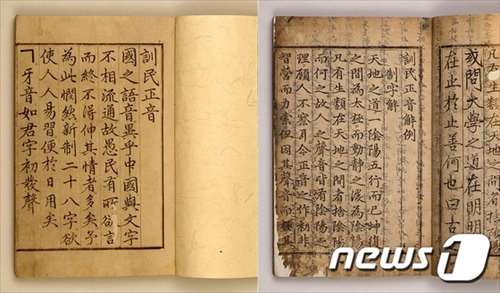 訓民正音
國之語音異乎中國與文字
不相流通故愚民有所欲言
而終不得伸其情者多矣予
為此憫然新制二十八字欲
使人人易習便於日用矣
ㄱ牙音如君字初發聲
或問大學之道在明明
在止於止善何也曰古
訓民正音解例
制字解
天地之道一陰陽五行而已坤復
之間為太極而動靜之後為陰陽
凡有生類在天地之間者捨陰陽
而何之故人之聲音皆有陰陽之
理顧人不察耳今正音之作初非
智營而力索但因其聲音而極其
news1